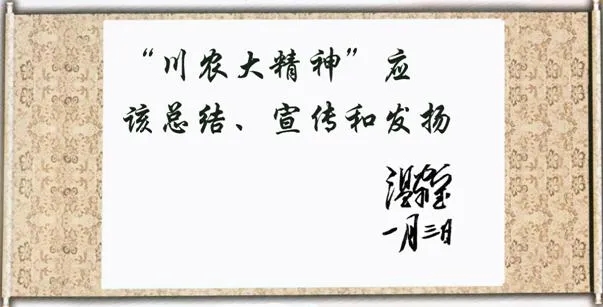 “川农大精神”应
该总结、宣传和发扬
温家宝
一月三日